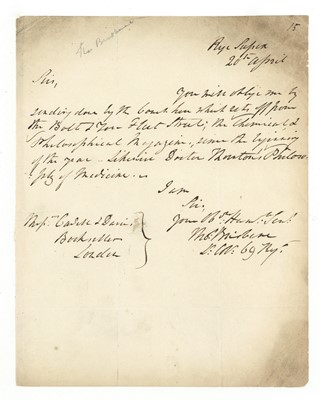 15
Rye Sussex
20th April
Sir,
You will oblige me by
sending down by the Coach which sets off from
the Bolt & Tun Fleet Street; the Chemical &
Philosophical Magazine, since the beginning
of the year. Likewise Doctor Thornton's Philoso
phy of Medicine.
I am
Sir,
Your Obt. Humle. Servt
Messrs. Cadell & Davies
Booksellers
London
Brisbane
Lt. Col. 69 Regt.